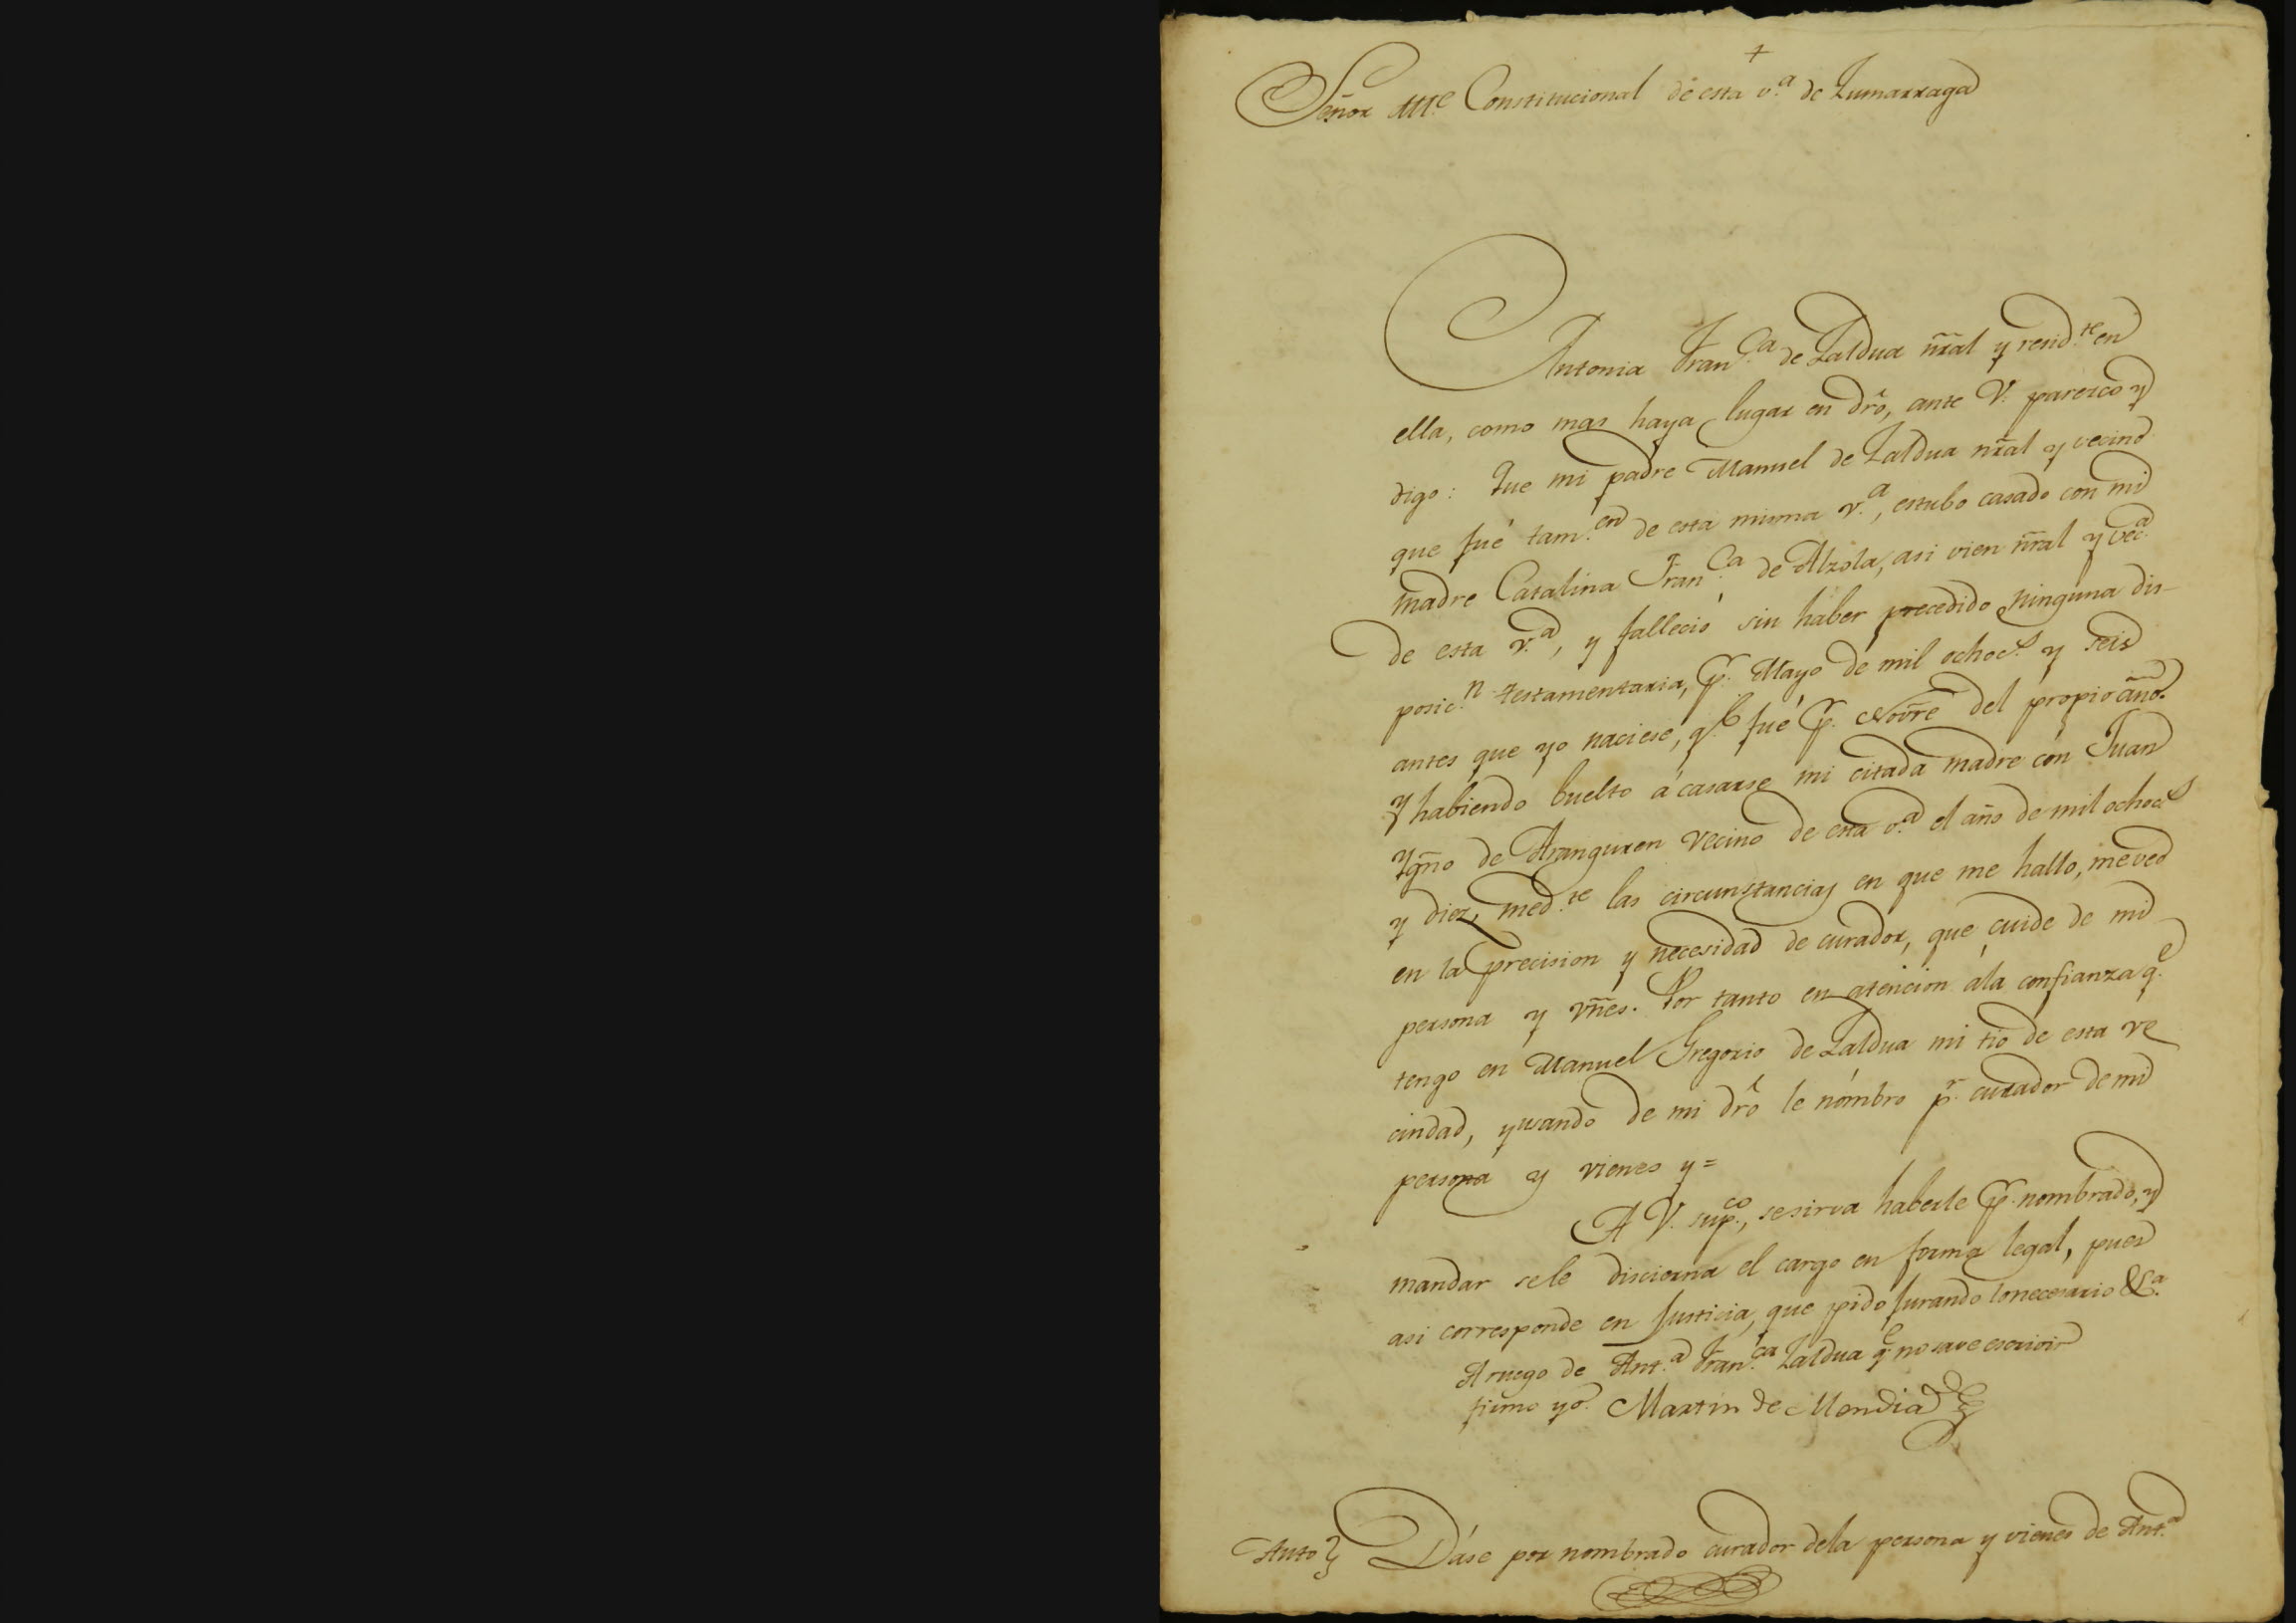 +
Señor Alle Constitucional de esta v.ª de Zumarraga
Antonia Fran.ca de Zaldua ñral y resid.te en
ella, como mas haya lugar en dr̃o, ante V. parezco y
digo: Que mi padre Manuel de Zaldua nr̃al y vecino
que fué tam.en de esta misma v.ª, estubo casado con mi
madre Catalina Fran.ca de Alzola, asi vien ñral y vec.ª
de esta v.ª, y falleció sin haber precedido ninguna dis-
posic.n testamentaria, p.r Mayo de mil ochoc.s y seis
antes que yo naciese, q.e fué p.r Novr̃e del propio año.
y habiendo buelto á casarse mi citada madre con Juan
Ygño de Aranguren vecino de esta v.ª el año de mil ochoc.s
y diez, med.te las circunstancias en que me hallo, me veo
en la precision y necesidad de curador, que cuide de mi
persona y vñes. Por tanto en atencion á la confianza q.e
tengo en Manuel Gregorio de Zaldua mi tio de esta ve
cindad, y usando de mi dr̃o le nombro p.r curador de mi
persona y vienes y =
A V. sup.co, se sirva haberle p.r nombrado, y
mandar se le discierna el cargo en forma legal, pues
asi corresponde en Justicia, que pido Jurando lo necesario &.ª
A ruego de Ant.ª Fran.ca Zaldua q.e no save escrivir
firmo yo. Martin de Mendia
Auto} Dáse por nombrado curador de la persona y vienes de Ant.ª